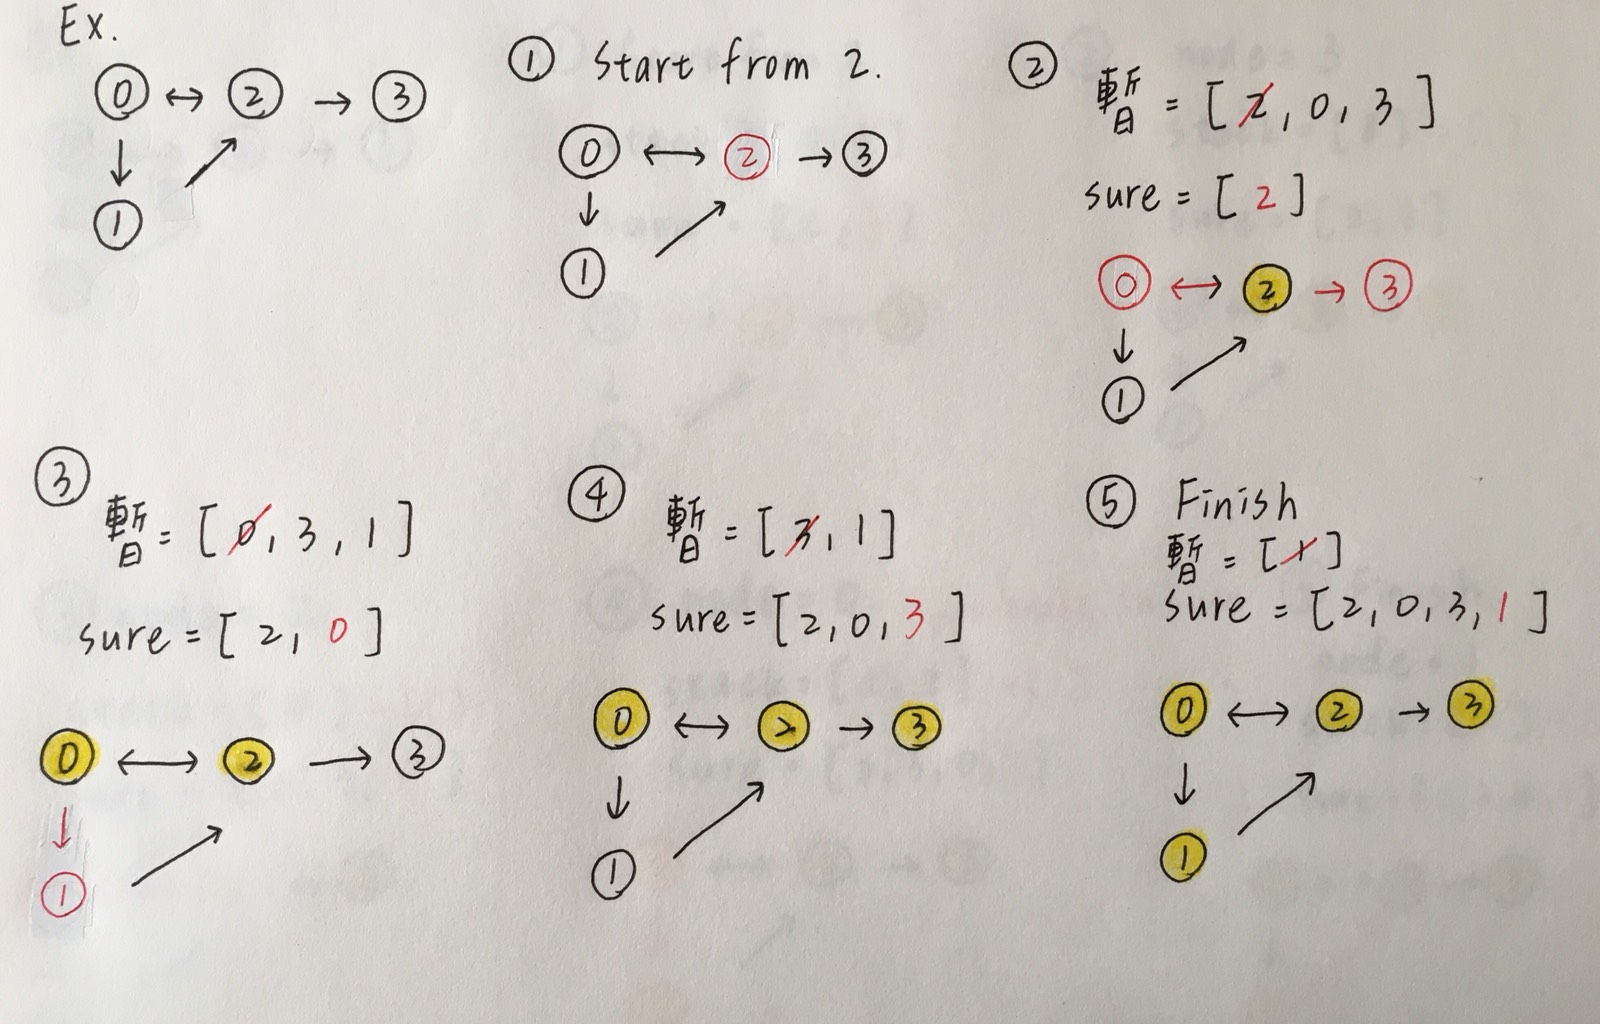 Ex.
0 ↔ 2 → 3
↓ ↗
1
① Start from 2.
0 ↔ 2 → 3
↓ ↗
1
② 暫 = [2, 0, 3]
sure = [2]
0 ↔ 2 → 3
↓ ↗
1
③ 暫 = [0, 3, 1]
sure = [2, 0]
0 ↔ 2 → 3
↓ ↗
1
④ 暫 = [3, 1]
sure = [2, 0, 3]
0 ↔ 2 → 3
↓ ↗
1
⑤ Finish
暫 = [1]
sure = [2, 0, 3, 1]
0 ↔ 2 → 3
↓ ↗
1